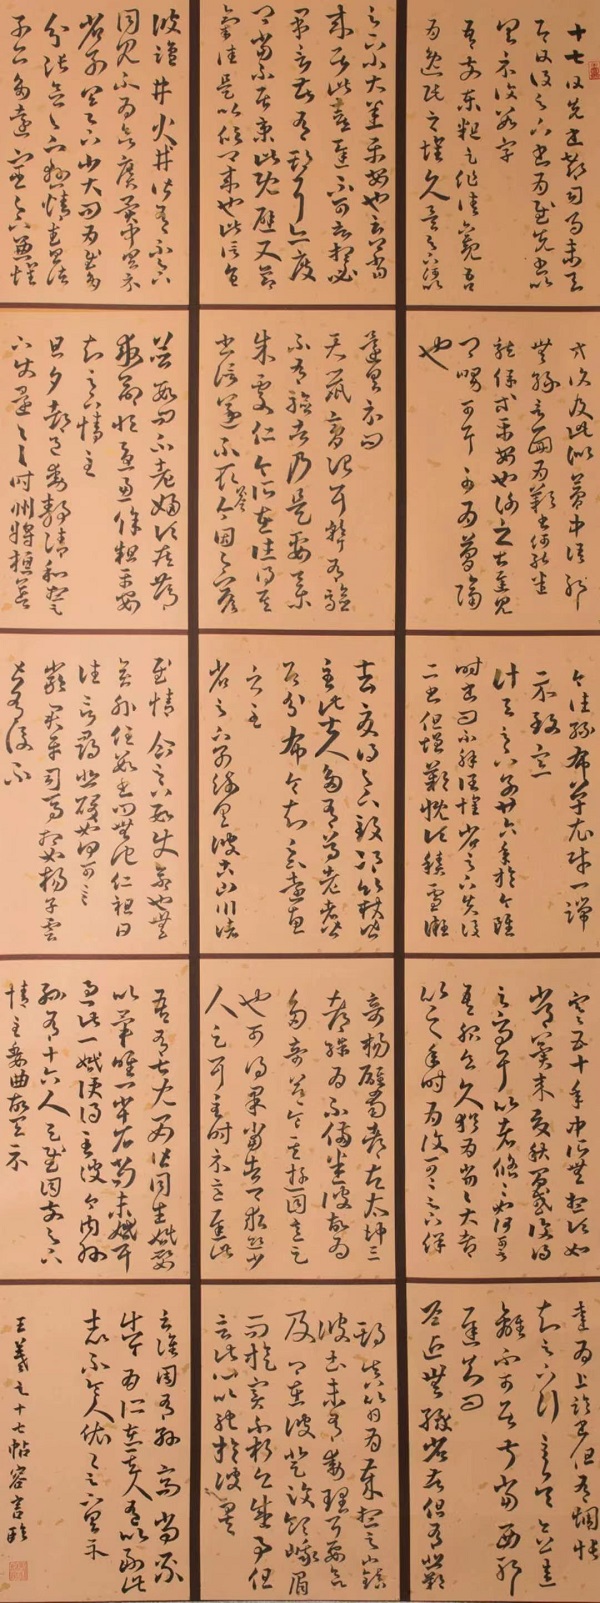 十七日先書郗司馬未去
即日得足下書為慰先書以
具示復數字
吾前東粗足作佳觀吾
為逸民之懷久矣足下何以
方復及此似夢中語耶
無緣言面為歎書何能悉
龍保等平安也謝之甚遲見
卿舅可耳至為簡隔
也
今往絲布單衣財一端
示致意
計與足下別廿六年於今雖
時書問不解闊懷省足下先後
二書但增歎慨頃積雪凝
寒五十年中所無想頃如
常冀來夏秋間或復得
足下問耳比者悠悠如何可言
吾服食久猶為劣劣大都
比之年時為復可可足下保
愛為上臨書但有惆悵
知足下行至吳念違
離不可居叔當西耶
遲知問
瞻近無緣省苦但有悲歎
足下小大悉平安也云卿當
來居此喜遲不可言想必
果言苦有期耳亦度
卿當不居京此既避又節
氣佳是以欣卿來也此信旨
還具示問
天鼠膏治耳聾有驗
不有驗者乃是要藥
朱處仁今所在往得其
書信遂不取答今因足下答
去夏得足下致邛竹杖皆
至此士人多有尊老者皆
即分布令知足下遠惠
之至
省足下別疏具彼土山川諸
奇揚雄蜀都左太沖三
都殊為不備悉彼故為
多奇益令其遊目意足
也可得果當告卿求迎少
人足耳至時示意遲此
期真以日為歲想足下鎮
彼土未有動理耳要欲
及卿在彼登汶領峨眉
而旋實不朽之盛事但
言此心以馳於彼矣
彼鹽井火井皆有不足下
目見不為欲廣異聞具示
省別具足下小大問為慰多
分張念足下懸情武昌諸
子亦多遠宦足下兼懷
並數問不老婦頃疾篤
救命恒憂慮餘粗平安
知足下情至
旦夕都邑動靜清和想足
下使還一一時州將桓公
告慰情企足下數使命也無
奕外任數書問無他仁祖日
往言尋悲酸如何可言
嚴君平司馬相如揚子雲
皆有後不
吾有七兒一女皆同生婚娶
以畢唯一小者尚未婚耳
過此一婚便得至彼今內外
孫有十六人足慰目前足下
情至委曲故具示
云譙周有孫高尚不
出今為所在其人有以副此
志不令人依依足下具示
王羲之十七帖容言臨